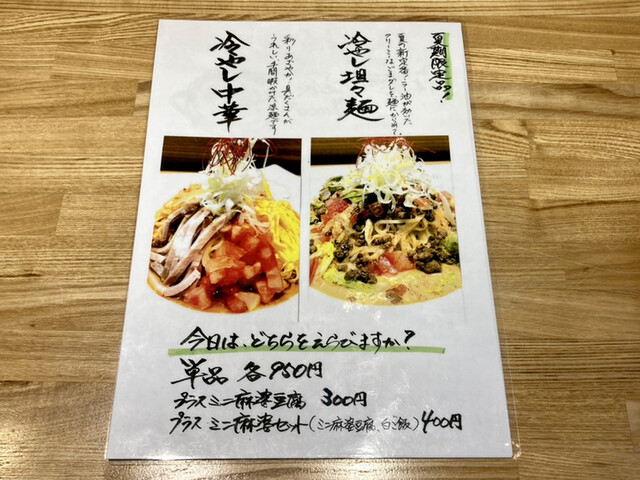 夏期限定品♪
冷やし坦々麺
夏の新定番!ラー油が効いた
クリーミーなごまダレを麺にからめて♪
冷やし中華
彩りあざやか、具だくさんが
うれしい手間暇かけた涼麺です
今日は、どちらをえらびますか?
単品 各950円
プラスミニ麻婆豆腐 300円
プラス ミニ麻婆セット(ミニ麻婆豆腐、白ご飯)400円